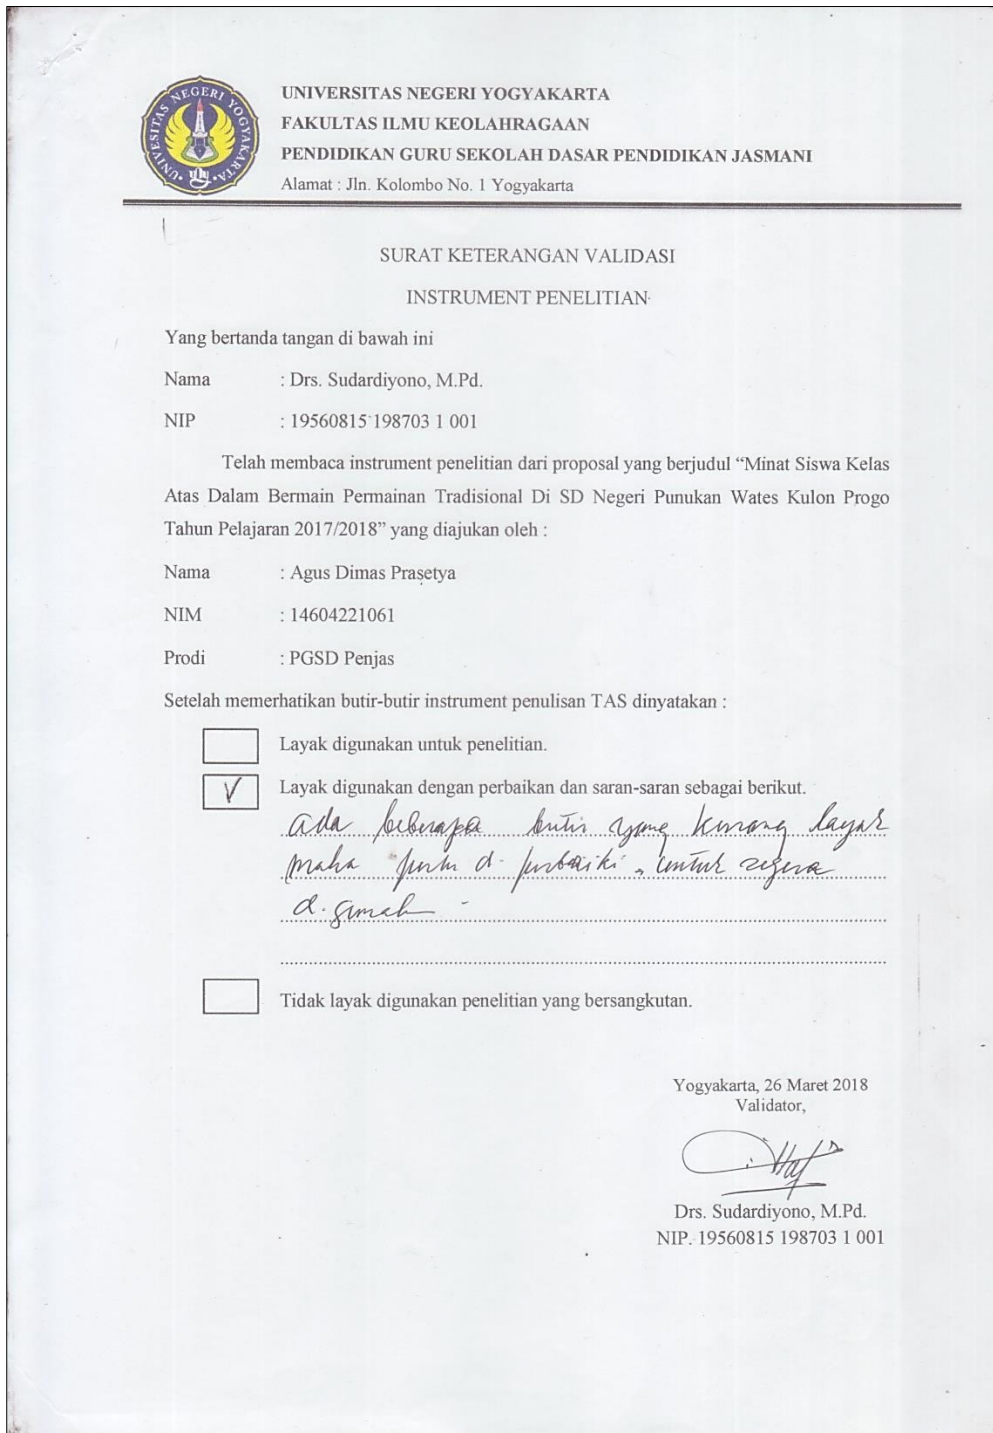 UNIVERSITAS NEGERI YOGYAKARTA
UNIVERSITAS NEGERI YOGYAKARTA
FAKULTAS ILMU KEOLAHRAGAAN
PENDIDIKAN GURU SEKOLAH DASAR PENDIDIKAN JASMANI
Alamat : Jln. Kolombo No. 1 Yogyakarta
SURAT KETERANGAN VALIDASI
INSTRUMENT PENELITIAN
Yang bertanda tangan di bawah ini
Nama : Drs. Sudardiyono, M.Pd.
NIP : 19560815 198703 1 001
Telah membaca instrument penelitian dari proposal yang berjudul “Minat Siswa Kelas
Atas Dalam Bermain Permainan Tradisional Di SD Negeri Punukan Wates Kulon Progo
Tahun Pelajaran 2017/2018” yang diajukan oleh :
Nama : Agus Dimas Prasetya
NIM : 14604221061
Prodi : PGSD Penjas
Setelah memerhatikan butir-butir instrument penulisan TAS dinyatakan :
Layak digunakan untuk penelitian.
V Layak digunakan dengan perbaikan dan saran-saran sebagai berikut.
ada beberapa butir yang kurang layak
maka perlu d. perbaiki, untuk segera
Tidak layak digunakan penelitian yang bersangkutan.
Yogyakarta, 26 Maret 2018
Validator,
Drs. Sudardiyono, M.Pd.
NIP. 19560815 198703 1 001